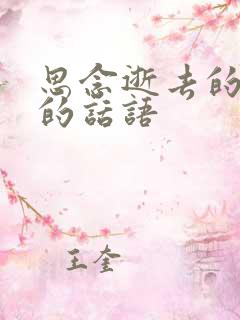 思念逝去的
的話語
王奎